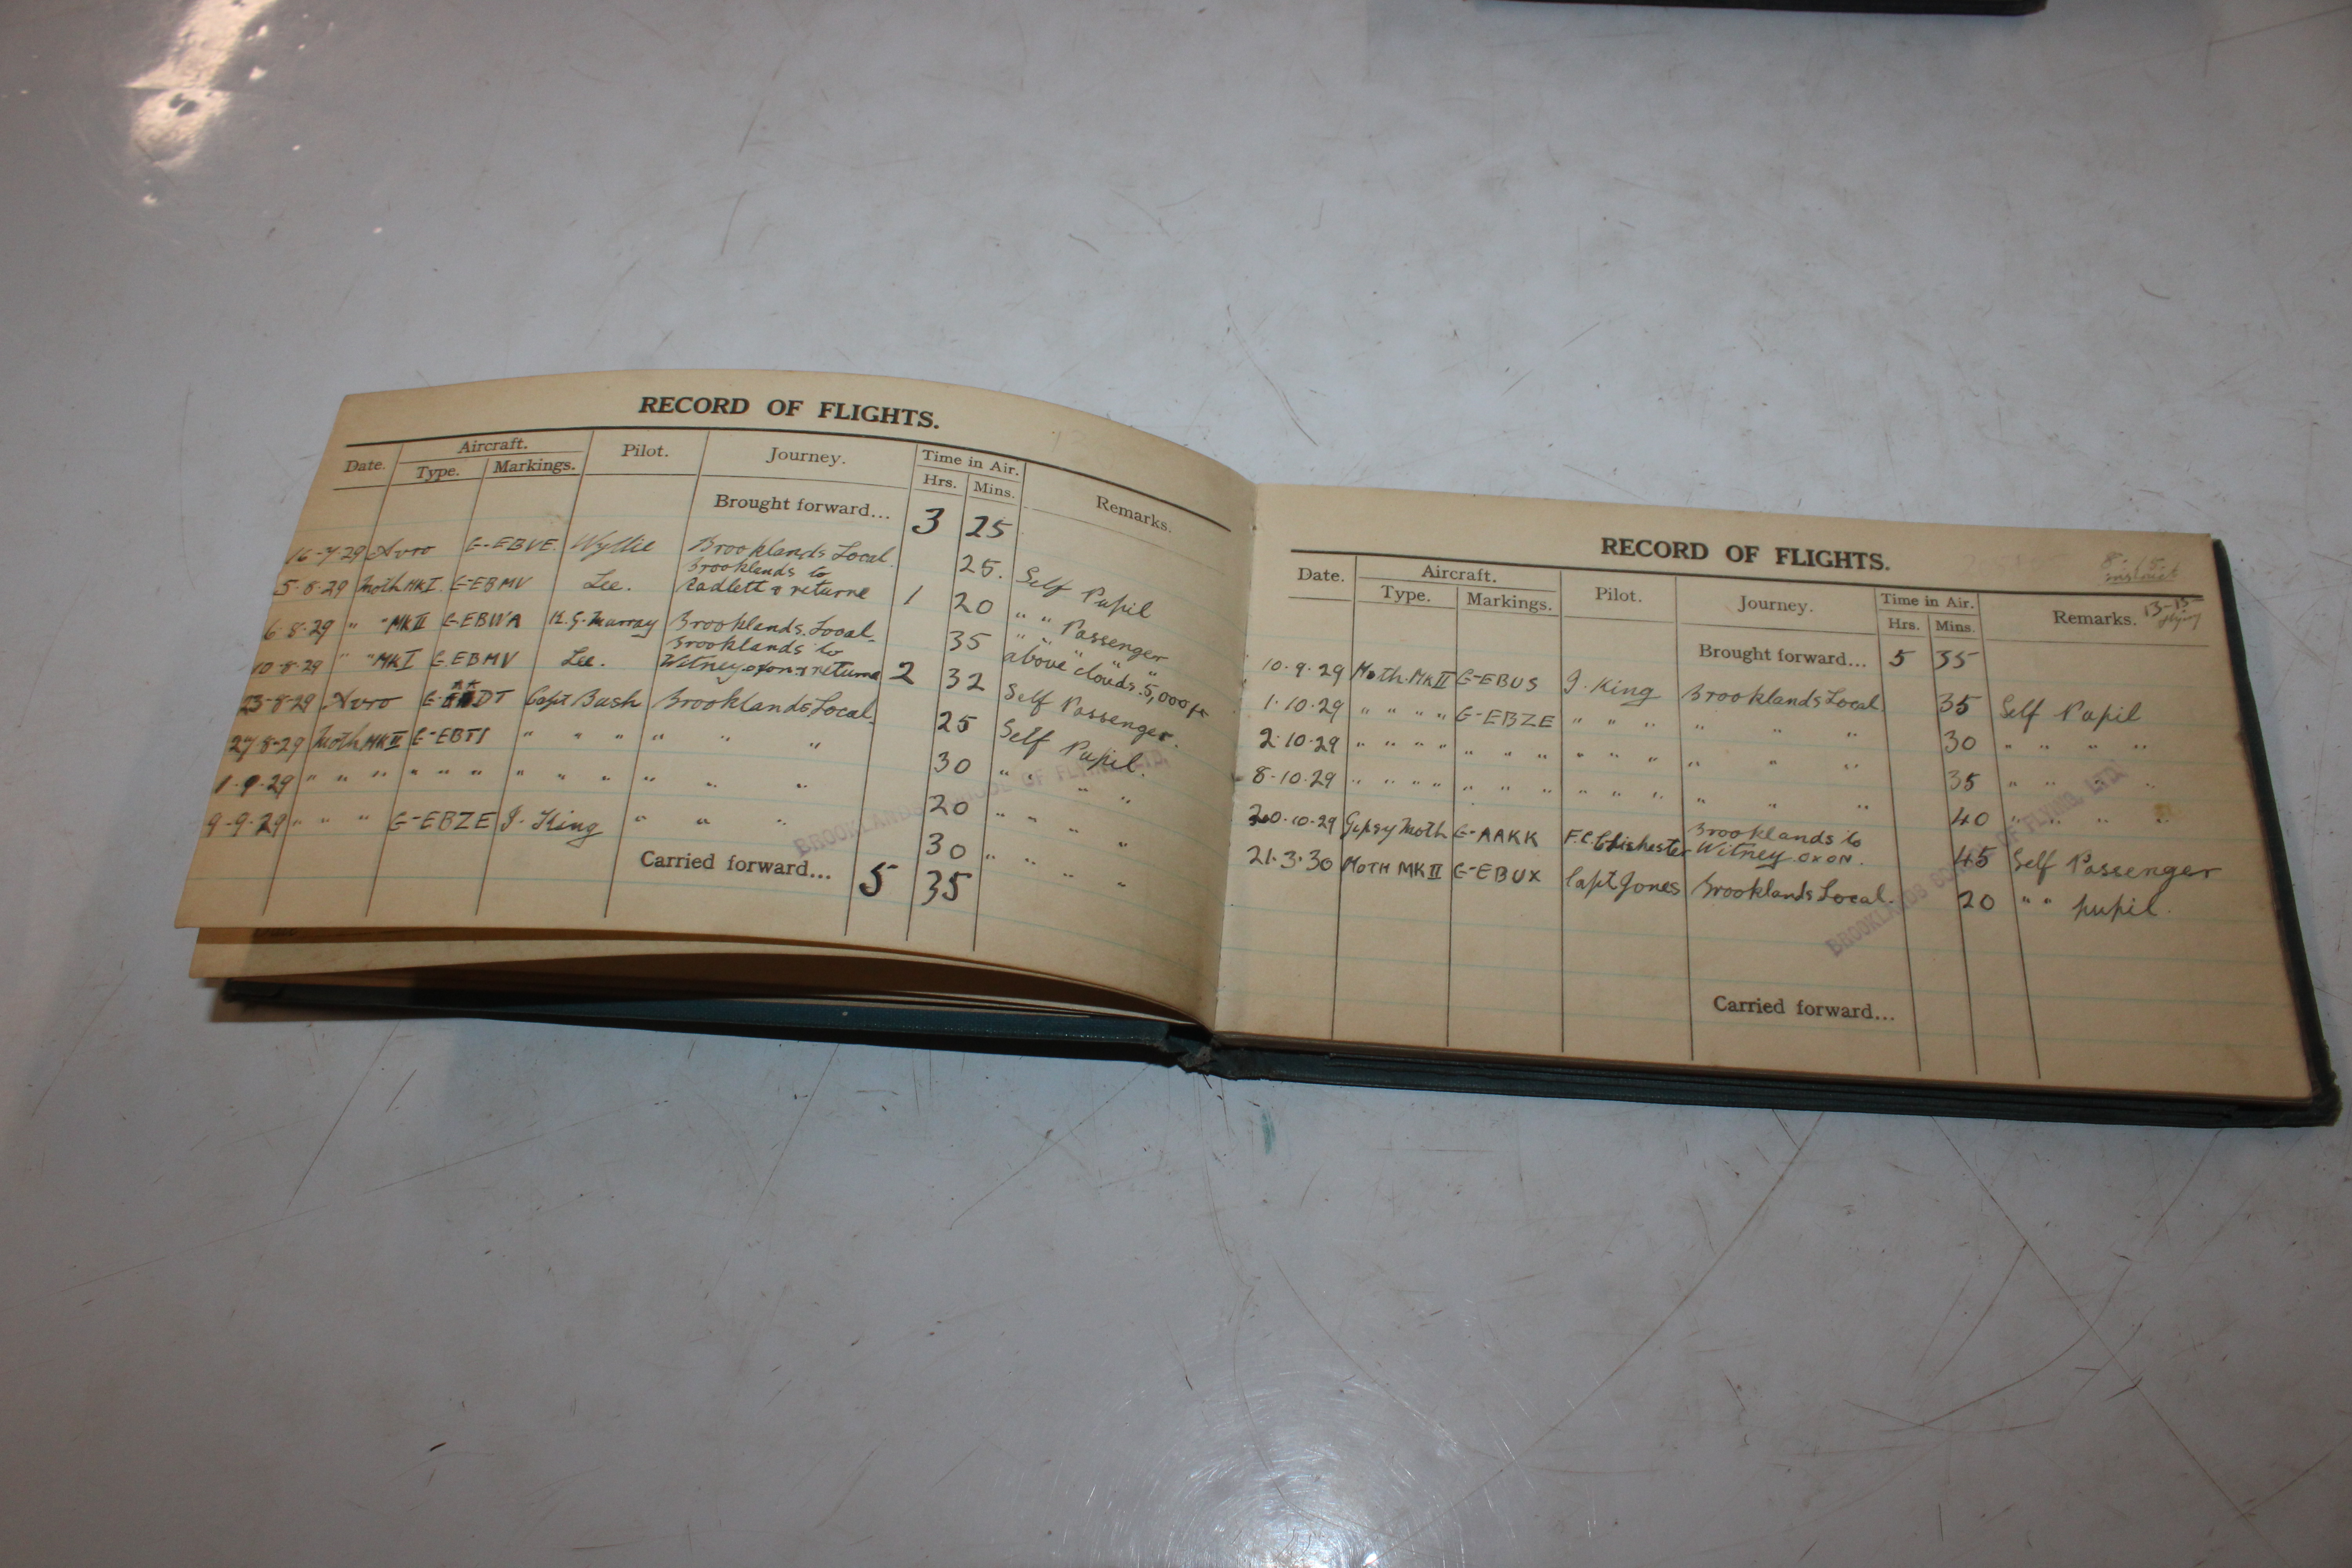 RECORD OF FLIGHTS.
Date. Aircraft. Pilot. Journey. Time in Air. Remarks.
Type. Markings. Hrs. Mins.
Brought forward... 3 25
16-7-29 Avro G-EBVE. Wyllie Brooklands Local. 25. Self Pupil
5-8-29 Moth MK I. G-EBMV Lee. Brooklands to
Radlett & returne 1 20 " " Passenger
6-8-29 " " MK II G-EBWA H.G. Murray Brooklands Local. 35 " " "
above clouds. 5,000 ft
10-8-29 " " MK I G.EBMV Lee. Brooklands to
Witney oxon & returne 2 32 Self Passenger.
23-8-29 Avro G-AADT Capt Bush Brooklands Local. 25 Self Pupil.
27-8-29 Moth MK II G-EBTI " " " " " " 30 " " " "
1-9-29 " " " " " " " " " " " " 20 " " " "
9-9-29 " " " G-EBZE J. King " " " 30 " " " "
Carried forward... 5 35
BROOKLANDS SCHOOL OF FLYING, LTD.
RECORD OF FLIGHTS.
8-15.
instruct
Date. Aircraft. Pilot. Journey. Time in Air. Remarks. 13-15
flying
Type. Markings. Hrs. Mins.
Brought forward... 5 35
10-9-29 Moth. MK II G-EBUS J. King Brooklands Local 35 Self Pupil
1.10.29 " " " " G-EBZE " " " " " " 30 " " " "
2.10.29 " " " " " " " " " " " " " 35 " " " "
8-10.29 " " " " " " " " " " " " " 40 " " " "
20-10-29 Gipsy Moth G-AAKK F.C. Chichester Brooklands to
Witney. OXON. 45 Self Passenger
21.3.30 MOTH MK II G-EBUX Capt Jones Brooklands Local. 20 " " pupil.
Carried forward...
BROOKLANDS SCHOOL OF FLYING, LTD.